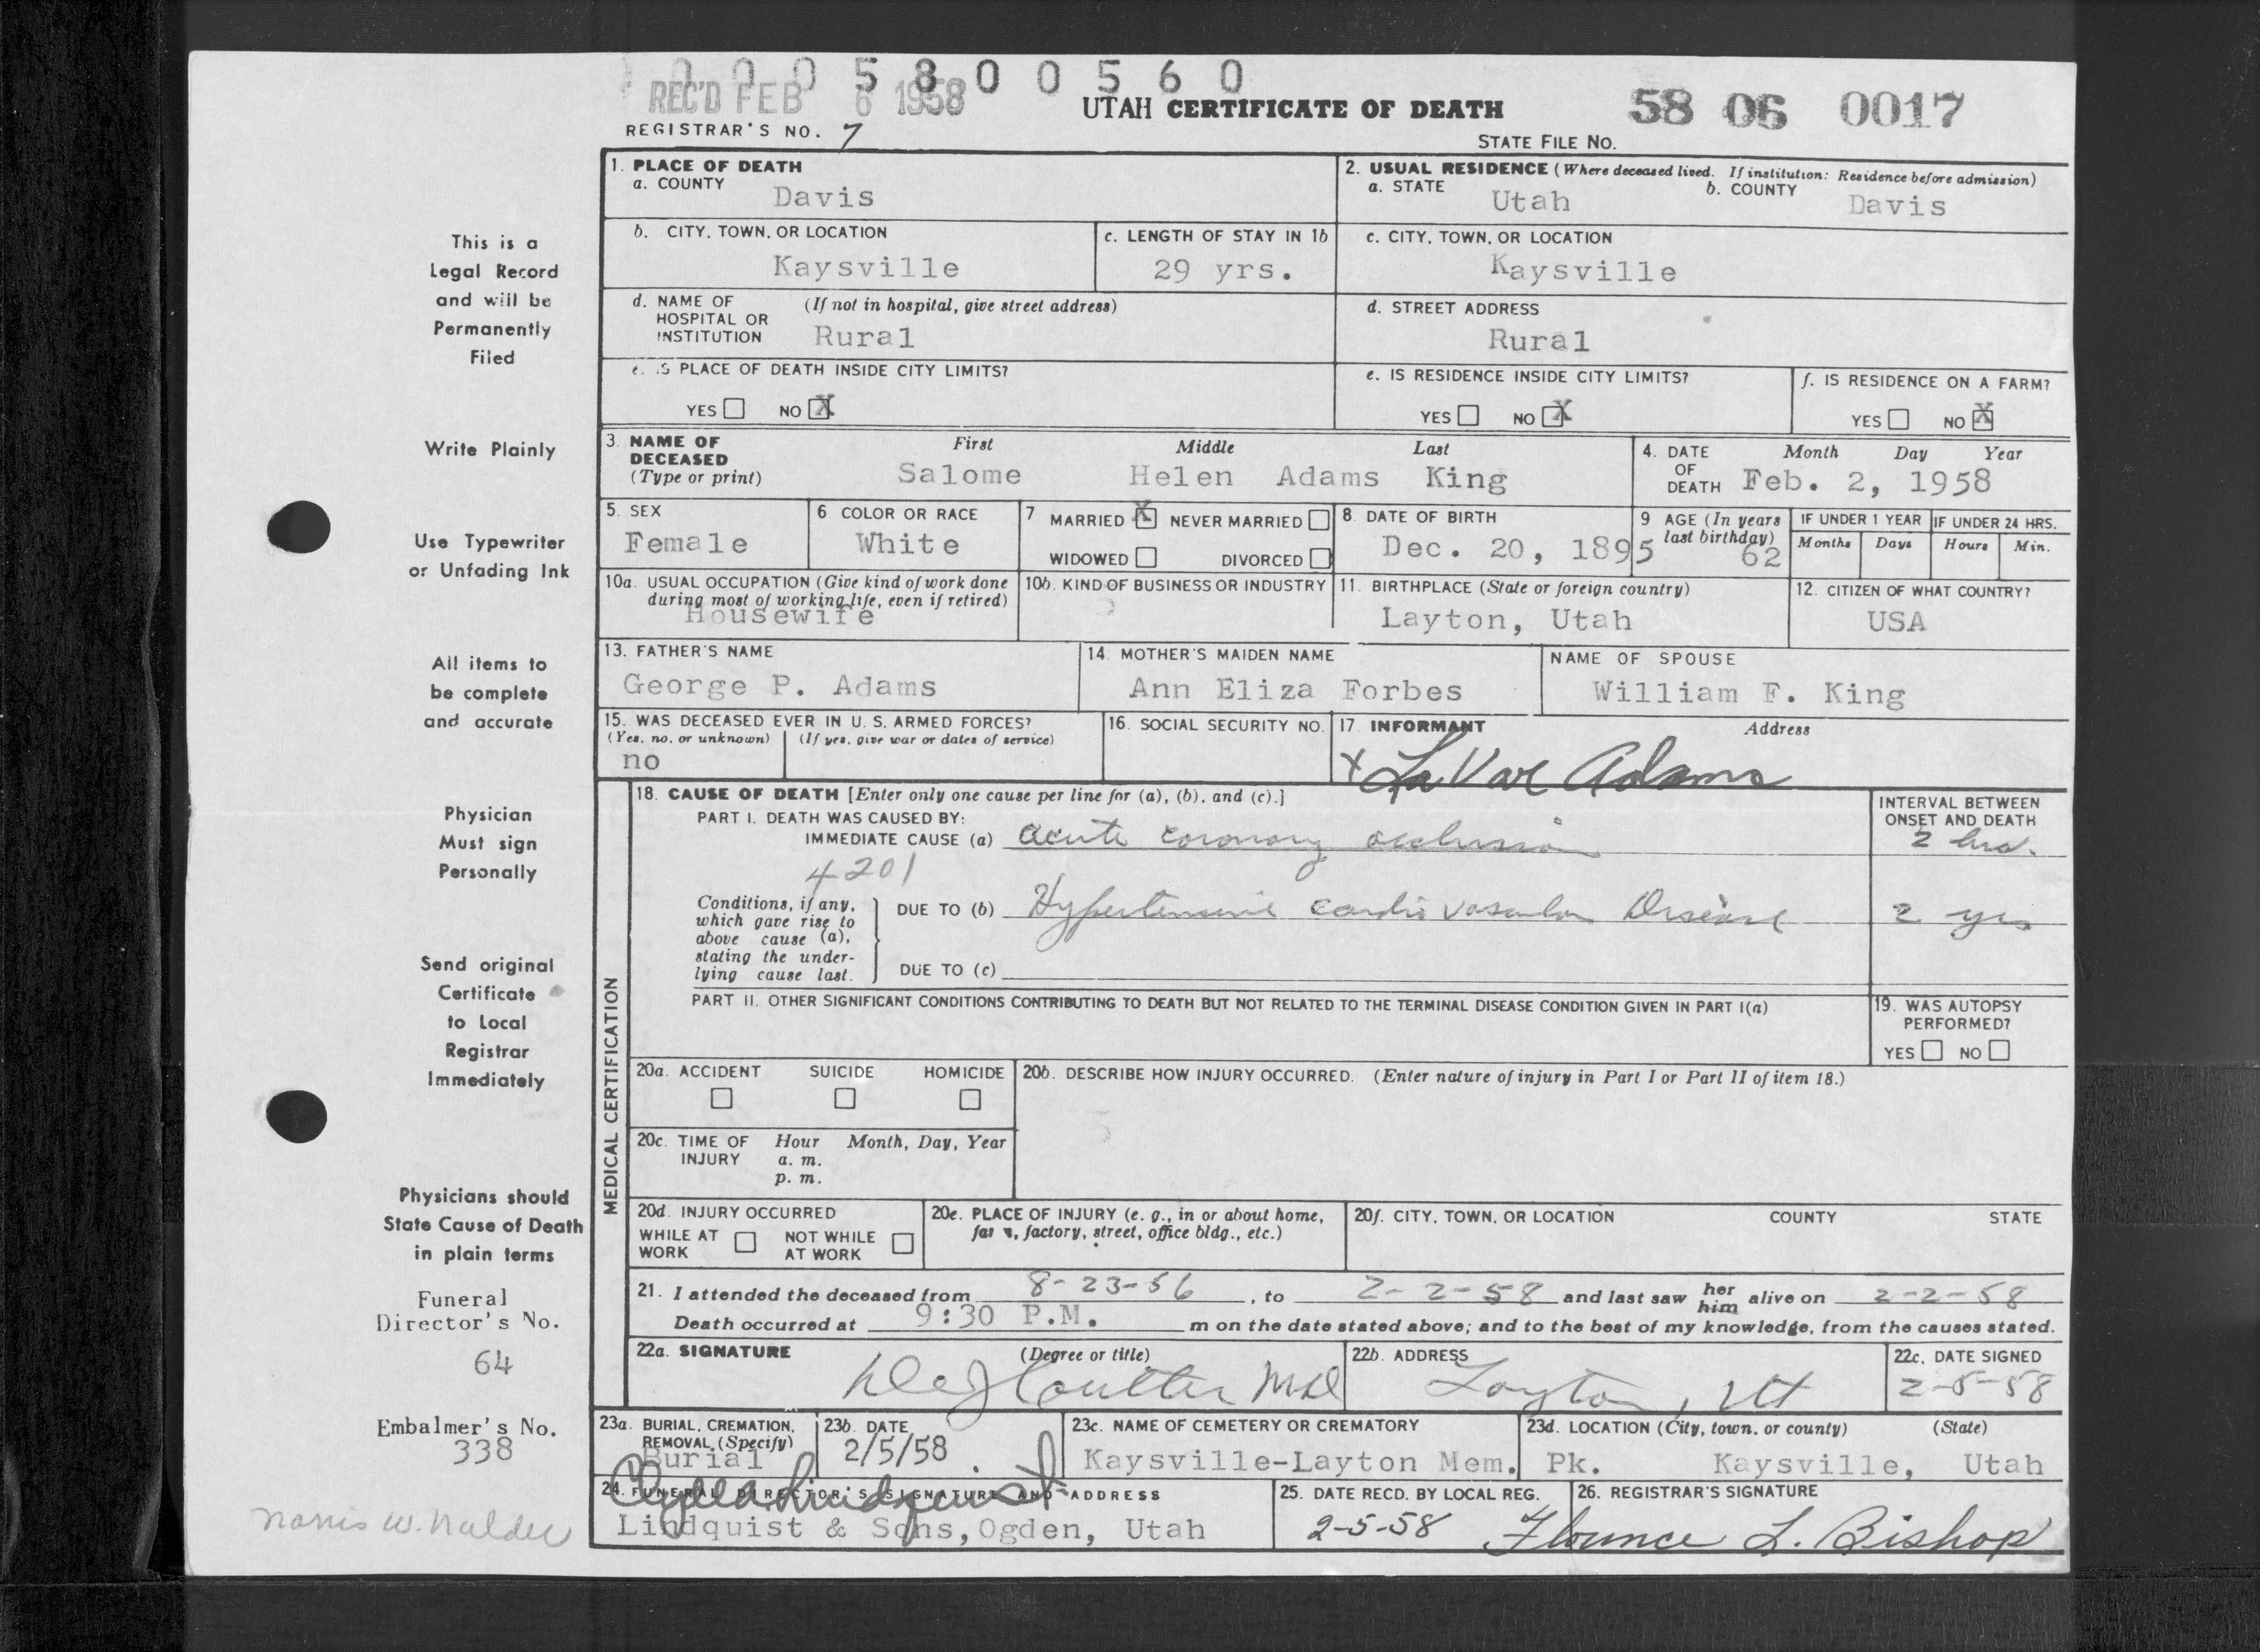 0 0 0 5 8 0 0 5 6 0
REC'D FEB 6 1958
UTAH CERTIFICATE OF DEATH
58 06 0017
REGISTRAR'S NO. 7
STATE FILE NO.
This is a
Legal Record
and will be
Permanently
Filed
Write Plainly
Use Typewriter
or Unfading Ink
All items to
be complete
and accurate
Physician
Must sign
Personally
Send original
Certificate
to Local
Registrar
Immediately
Physicians should
State Cause of Death
in plain terms
Funeral
Director's No.
64
Embalmer's No.
338
1. PLACE OF DEATH
a. COUNTY Davis
2. USUAL RESIDENCE (Where deceased lived. If institution: Residence before admission)
a. STATE Utah b. COUNTY Davis
b. CITY, TOWN, OR LOCATION Kaysville
c. LENGTH OF STAY IN 1b 29 yrs.
c. CITY, TOWN, OR LOCATION Kaysville
d. NAME OF HOSPITAL OR INSTITUTION (If not in hospital, give street address) Rural
d. STREET ADDRESS Rural
e. IS PLACE OF DEATH INSIDE CITY LIMITS?
YES NO X
e. IS RESIDENCE INSIDE CITY LIMITS?
YES NO X
f. IS RESIDENCE ON A FARM?
YES NO X
3. NAME OF DECEASED (Type or print) First Middle Last
Salome Helen Adams King
4. DATE OF DEATH Month Day Year
Feb. 2, 1958
5. SEX Female
6 COLOR OR RACE White
7 MARRIED X NEVER MARRIED
WIDOWED DIVORCED
8. DATE OF BIRTH Dec. 20, 1895
9 AGE (In years last birthday) 62
IF UNDER 1 YEAR Months Days
IF UNDER 24 HRS. Hours Min.
10a. USUAL OCCUPATION (Give kind of work done during most of working life, even if retired)
Housewife
10b. KIND OF BUSINESS OR INDUSTRY
11. BIRTHPLACE (State or foreign country)
Layton, Utah
12. CITIZEN OF WHAT COUNTRY?
USA
13. FATHER'S NAME
George P. Adams
14. MOTHER'S MAIDEN NAME
Ann Eliza Forbes
NAME OF SPOUSE
William F. King
15. WAS DECEASED EVER IN U. S. ARMED FORCES?
(Yes, no, or unknown) (If yes, give war or dates of service)
no
16. SOCIAL SECURITY NO.
17. INFORMANT Address
X LaVar Adams
MEDICAL CERTIFICATION
18. CAUSE OF DEATH [Enter only one cause per line for (a), (b), and (c).]
INTERVAL BETWEEN ONSET AND DEATH
PART I. DEATH WAS CAUSED BY:
IMMEDIATE CAUSE (a) acute coronary occlusion 2 hrs.
4201
Conditions, if any, which gave rise to above cause (a), stating the underlying cause last.
DUE TO (b) Hypertensive cardio vascular Disease 2 yrs
DUE TO (c)
PART II. OTHER SIGNIFICANT CONDITIONS CONTRIBUTING TO DEATH BUT NOT RELATED TO THE TERMINAL DISEASE CONDITION GIVEN IN PART I(a)
19. WAS AUTOPSY PERFORMED?
YES NO
20a. ACCIDENT SUICIDE HOMICIDE
20b. DESCRIBE HOW INJURY OCCURRED. (Enter nature of injury in Part I or Part II of item 18.)
20c. TIME OF INJURY Hour Month, Day, Year
a. m.
p. m.
20d. INJURY OCCURRED
WHILE AT WORK NOT WHILE AT WORK
20e. PLACE OF INJURY (e. g., in or about home, farm, factory, street, office bldg., etc.)
20f. CITY, TOWN, OR LOCATION COUNTY STATE
21. I attended the deceased from 8-23-56, to 2-2-58 and last saw her him alive on 2-2-58
Death occurred at 9:30 P.M. m on the date stated above; and to the best of my knowledge, from the causes stated.
22a. SIGNATURE (Degree or title)
Coulter MD
22b. ADDRESS
Layton, Ut
22c. DATE SIGNED
2-5-58
23a. BURIAL, CREMATION, REMOVAL, (Specify)
Burial
23b. DATE
2/5/58
23c. NAME OF CEMETERY OR CREMATORY
Kaysville-Layton Mem. Pk.
23d. LOCATION (City, town, or county) (State)
Kaysville, Utah
24. FUNERAL DIRECTOR'S SIGNATURE AND ADDRESS
Clyde A Lindquist
Lindquist & Sons, Ogden, Utah
25. DATE RECD. BY LOCAL REG.
2-5-58
26. REGISTRAR'S SIGNATURE
Flounce L. Bishop
Norris W. Nalder